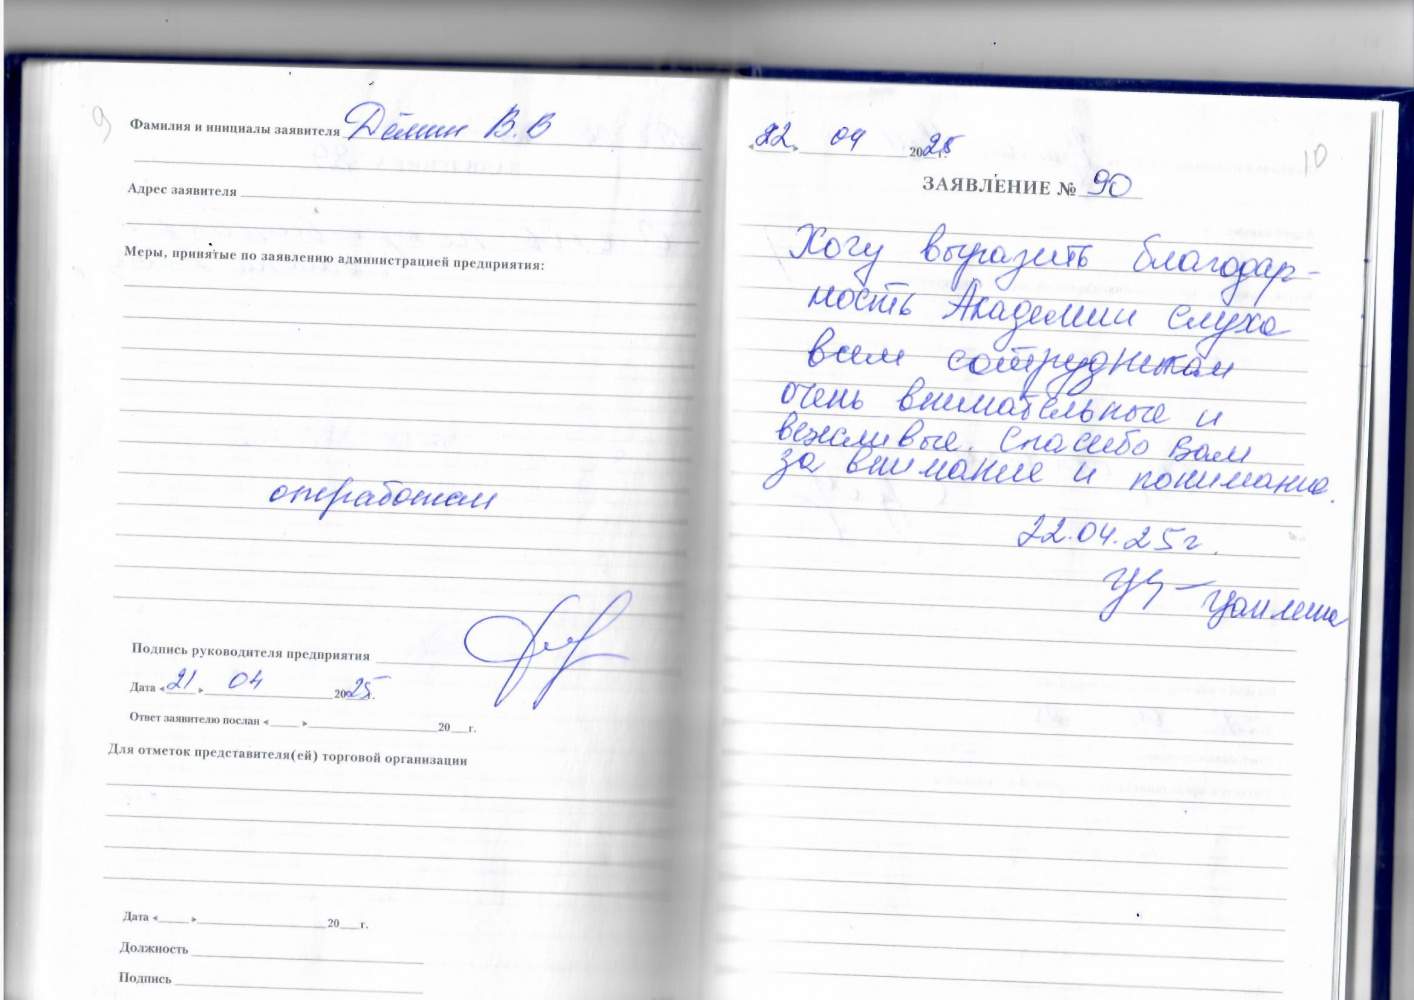 9
Фамилия и инициалы заявителя Дёмин В.В
Адрес заявителя
Меры, принятые по заявлению администрацией предприятия:
Подпись руководителя предприятия
Дата «21» 04 2025 г.
Ответ заявителю послан «___» ___ 20__г.
Для отметок представителя(ей) торговой организации
Дата «___» ___ 20__г.
Должность
Подпись
10
«22» 04 2025 г.
ЗАЯВЛЕНИЕ № 90
Хочу выразить благодар-
ность Академии слуха
всем сотрудникам
очень внимательные и
вежливые. Спасибо Вам
за внимание и понимание.
22.04.25г.